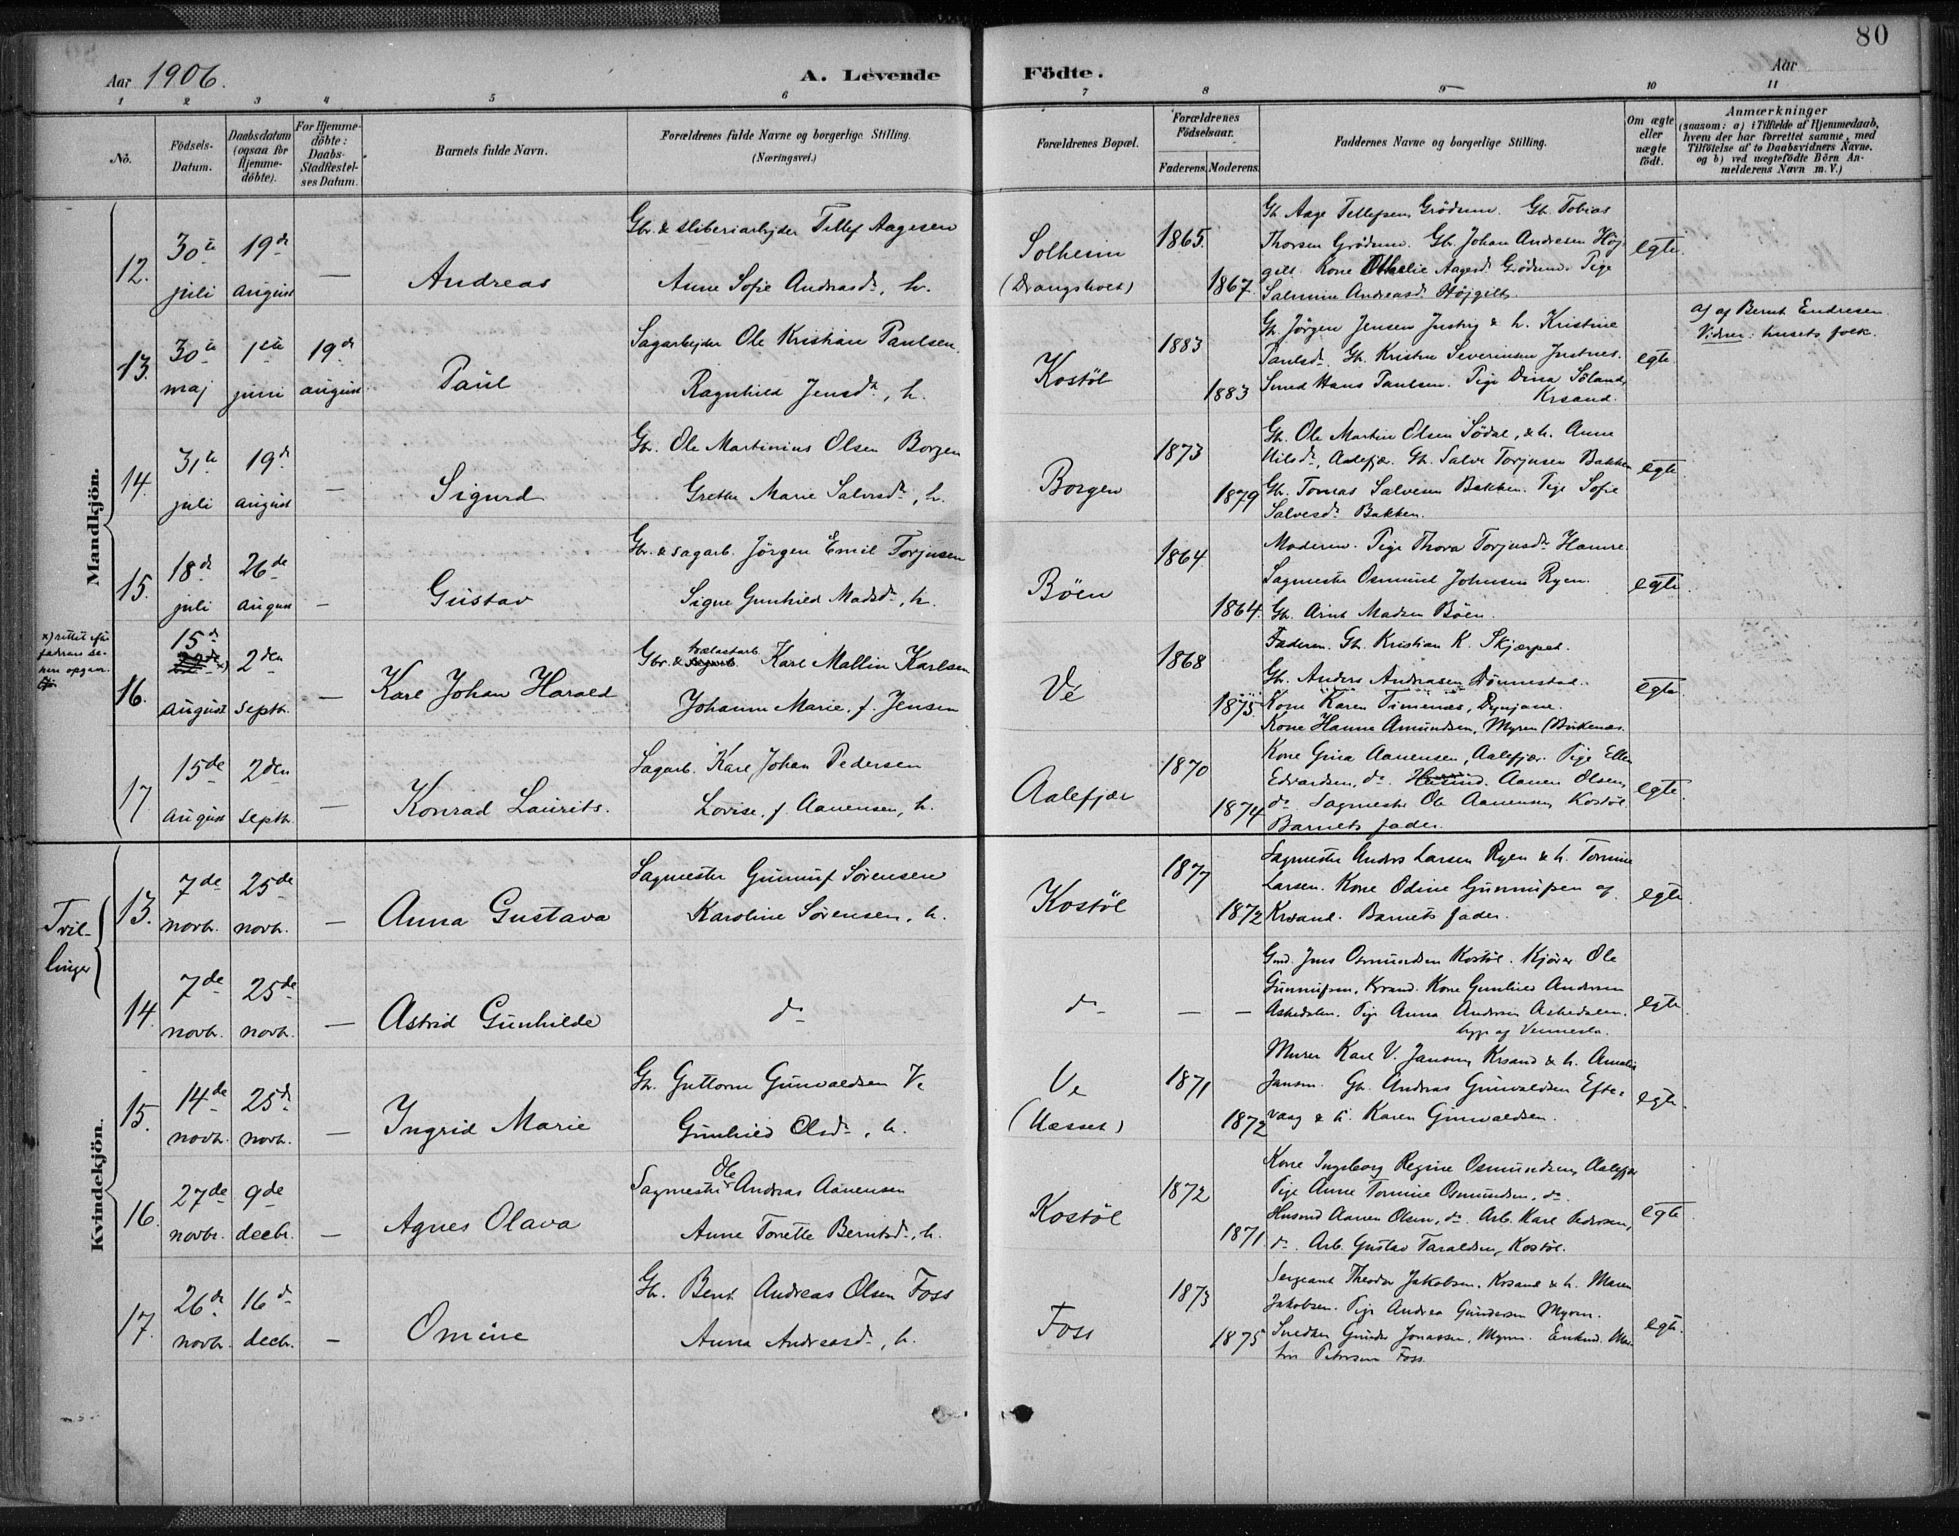 80
Aar 1906. A. Levende Födte. Aar
1 2 3 4 5 6 7 8 9 10 11
No.
Födsels-Datum.
Daabsdatum (ogsaa for Hjemme-döbte).
For Hjemme-döbte: Daabs-Stadfæstel-ses Datum.
Barnets fulde Navn.
Forældrenes fulde Navne og borgerlige Stilling.
(Næringsvei.)
Forældrenes Bopæl.
Forældrenes Födselsaar.
Faderens. Moderens.
Faddernes Navne og borgerlige Stilling.
Om ægte eller uægte födt.
Anmærkninger
(saasom: a) i Tilfælde af Hjemmedaab, hvem der har forrettet samme, med Tilföielse af to Daabsvidners Navne. og b) ved uægtefödte Börn An-melderens Navn m. V.)
Mandkjön.
12. 30te juli 19de august — Andreas
Gbr. & sliberiarbejder Tellef Aagesen
Anne Sofie Andreasdr., h.
Solheim (Drangsholt) 1865. 1867.
Gb. Aage Tellefsen, Grödum. Gb. Tobias
Thorsen Grödum. Gb. Johan Andresen Höj-
gilt. Kone Othelie Aagesdr. Grödum. Pige
Salmine Andreasdr. Höjgilt.
egte.
13. 30te maj 1ste juni 19de august Paul
Sagarbejder Ole Kristian Paulsen.
Ragnhild Jensdr., h.
Kostöl 1883 1883
Gb. Jörgen Jensen Justvig & h. Kristine
Paulsdr. Gb. Kristen Severinsen Justnes.
Smed Hans Paulsen. Pige Dina Söland,
Krsand.
egte
af Bernt Endresen.
Vidner: husets folk.
14. 31te juli 19de august — Sigurd
Gbr. Ole Martinius Olsen Borgen
Grethe Marie Salvesdr., h.
Borgen 1873 1879
Gb. Ole Martin Olsen Södal, & h. Anne
Nilsdr., Aalefjær. Gb. Salve Torjusen Bakken
Gb. Tomas Salvesen Bakken. Pige Sofie
Salvesdr. Bakken.
egte
15. 18de juli 26de august — Gustav
Gbr. & sagarb. Jörgen Emil Torjusen
Signe Gunhild Madsdr., h.
Böen 1864 1864.
Moderen. Pige Thora Torjusdr. Hamre.
Sagmester Osmund Johnsen Ryen.
Gb. Arnt Madsen Böen.
egte
x) rettet efter faderens se-nere opgave.
16. 15de x) august 2den septbr. — Karl Johan Harald
Gbr. & trælastarb. Karl Mallin Karlsen
Johanne Marie, f. Jensen
Ve 1868 1875.
Faderen. Gb. Kristian K. Skjærpet.
Gb. Anders Andreasen Dönnestad.
Kone Karen Timenes, Dynjane.
Kone Hanne Amundsen, Myren (Birkenæs.
egte
17 15de august 2den septbr. — Konrad Laurits.
Sagarb. Karl Johan Pedersen
Lovise, f. Aanensen, h.
Aalefjær 1870 1874
Kone Gina Aanensen, Aalefjær. Pige Ellen
Edvardsen, do. Aanen Olsen,
do. Sagmester Ole Aanensen, Kostöl.
Barnets fader.
egte.
Kvindekjön.
Tvil-
linger
13. 7de novbr. 25de novbr. — Anna Gustava
Sagmester Gunnuf Sörensen
Karoline Sörensen, h.
Kostöl 1877 1872
Sagmester Anders Larsen Ryen & h. Tomine
Larsen. Kone Odine Gunnufsen og
Krsand. Barnets fader.
egte.
14. 7de novbr. 25de novbr. — Astrid Gunhilde
do
do — —
Gmd. Jens Osmundsen Kostöl. Kjörer Ole
Gunnufsen, Krsand. Kone Gunhild Andersen
Askedalen. Pige Anna Andersen Askedalen.
begge af Vennesla.
egte.
15. 14de novbr. 25de novbr. — Ingrid Marie
Gb. Guttorm Gunvaldsen Ve
Gunhild Olsdr., h.
Ve (Uæsset) 1871 1872
Murer Karl V. Jansen, Krsand & h. Amalie
Jansen. Gb. Andreas Gunvaldsen Efte-
vaag & h. Karen Gunvaldsen.
egte.
16. 27de novbr. 9de decbr. — Agnes Olava
Sagmester Ole Andreas Aanensen
Anne Tonette Berntsdr., h.
Kostöl 1872 1871.
Kone Ingeborg Regine Osmundsen, Aalefjær
Pige Anne Tomine Osmundsen, do.
Husmd Aanen Olsen, do. Arb. Karl Pedersen,
do. Arb. Gustav Taraldsen, Kostöl.
egte
17. 26de novbr. 16de decbr. — Omine
Gb. Bent Andreas Olsen Foss
Anna Andreasdr., h.
Foss 1873 1875
Sergeant Theodor Jakobsen, Krsand & h. Maren
Jakobsen. Pige Andrea Gundersen Myren.
Snedker Gunder Jonassen, Myren. Enkemd. Mor-
ten Petersen Foss.
egte.